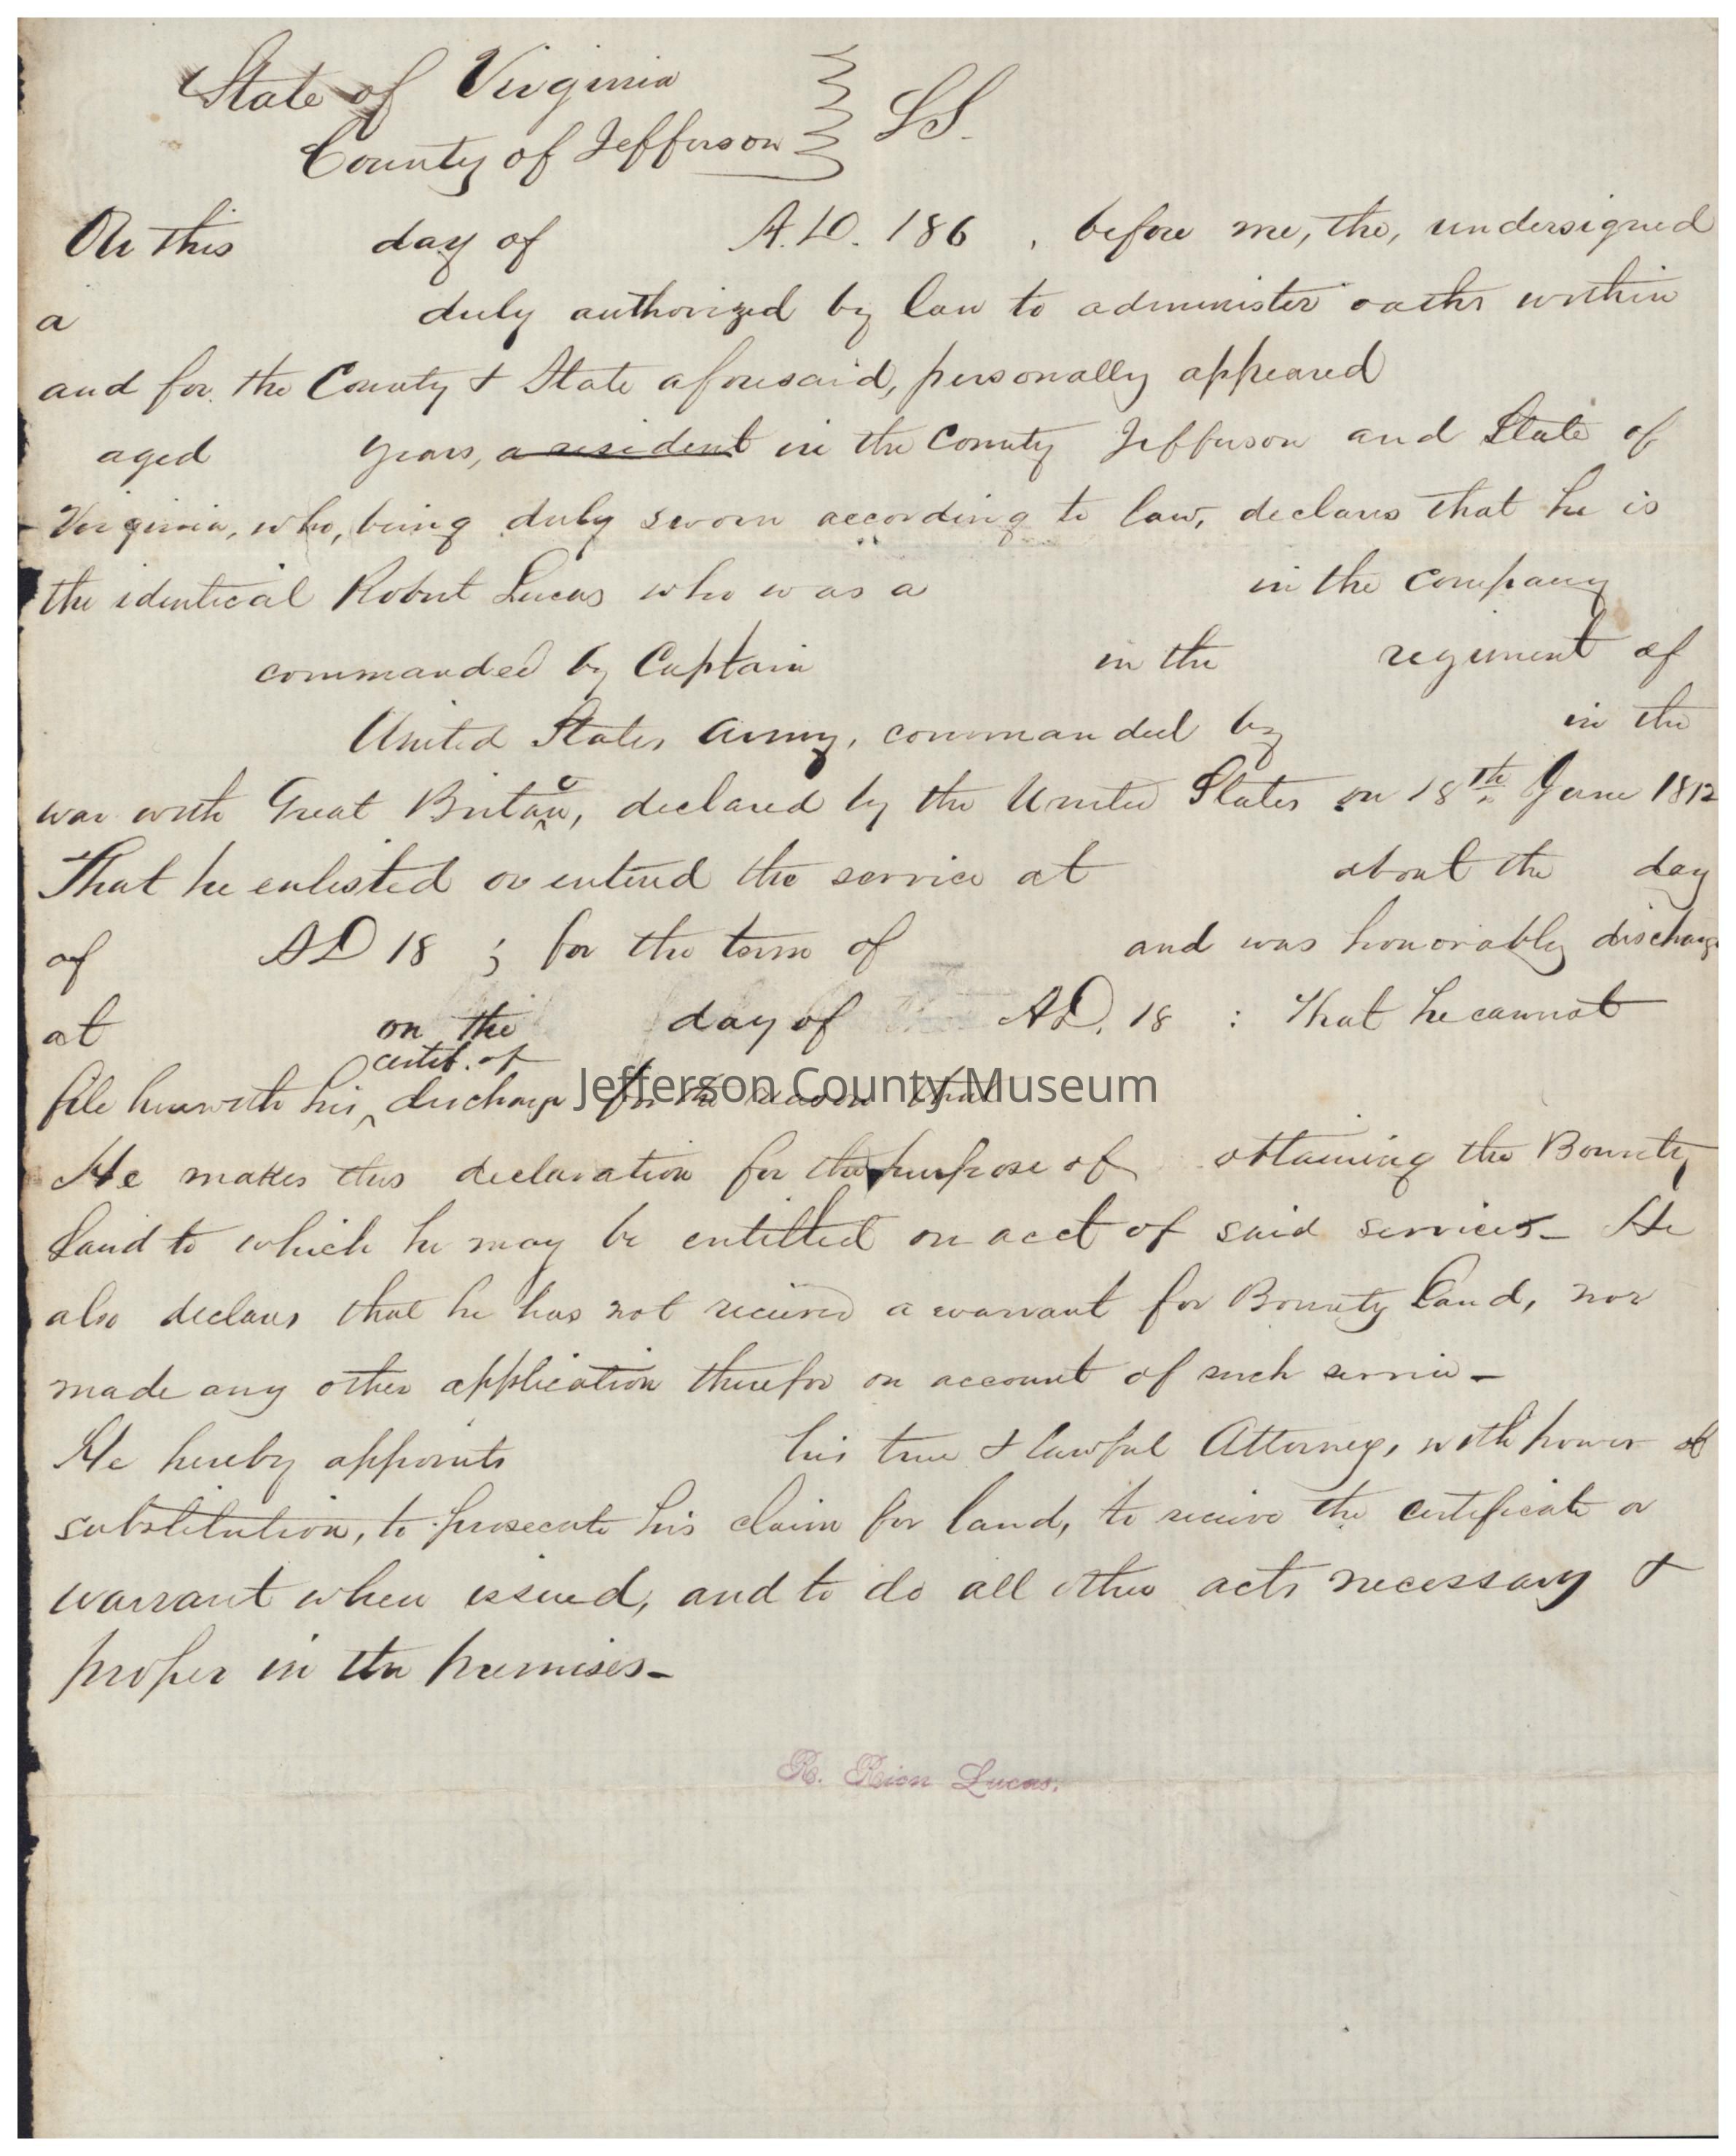 State of Virginia
County of Jefferson } SS.
On this day of A.D. 186 , before me, the, undersigned
a duly authorized by law to administer oaths within
and for the County & State aforesaid, personally appeared
aged years, a resident in the County Jefferson and State of
Virginia, who, being duly sworn according to law, declares that he is
the identical Robert Lucas who was a in the company
commanded by Captain in the regiment of
United States Army, commanded by in the
war with Great Britain, declared by the United States on 18th June 1812
That he enlisted or entered the service at about the day
of AD 18 ; for the term of and was honorably discharg
at on the day of AD. 18 : That he cannot
certif. of
file herewith his discharge for the reason that
Jefferson County Museum
He makes this declaration for the purpose of obtaining the Bounty
Land to which he may be entitled on acct of said services_ He
also declares that he has not received a warrant for Bounty Land, nor
made any other application therefor on account of such service_
He hereby appoints his true & lawful Attorney, with power of
substitution, to prosecute his claim for land, to receive the certificate or
warrant when issued, and to do all other acts necessary &
proper in the premises_
R. Rion Lucas.